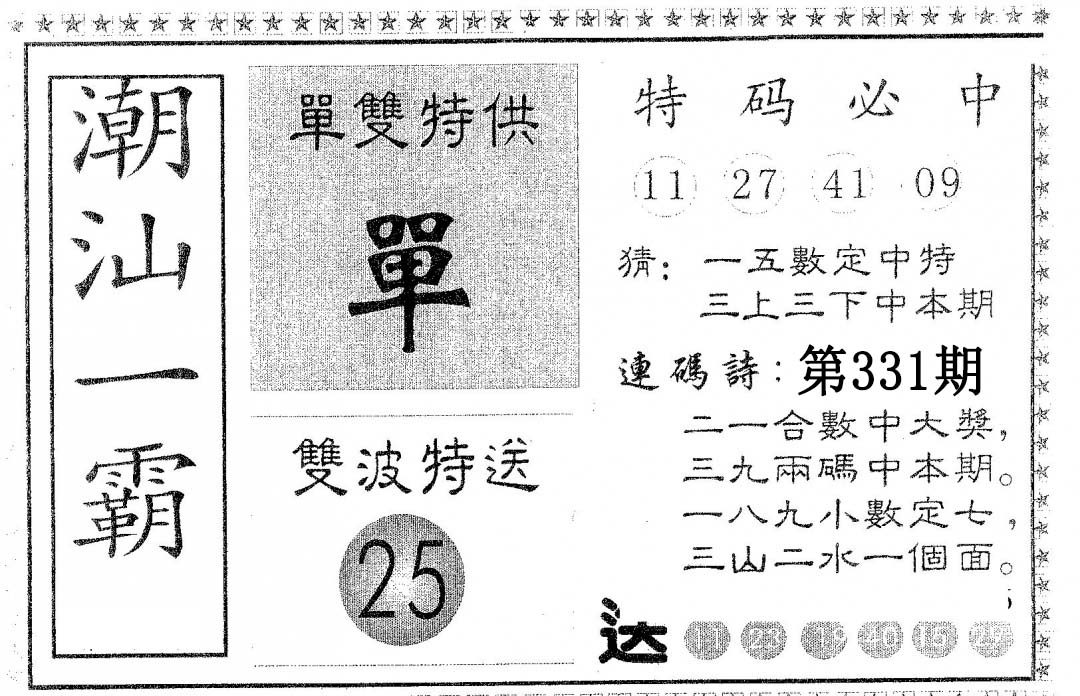 潮汕一霸
單雙特供
單
雙波特送
25
特码必中
11 27 41 09
猜：一五數定中特
三上三下中本期
連碼詩：第331期
二一合數中大獎，
三九兩碼中本期。
一八九小數定七，
三山二水一個面。
送 11 23 19 40 15